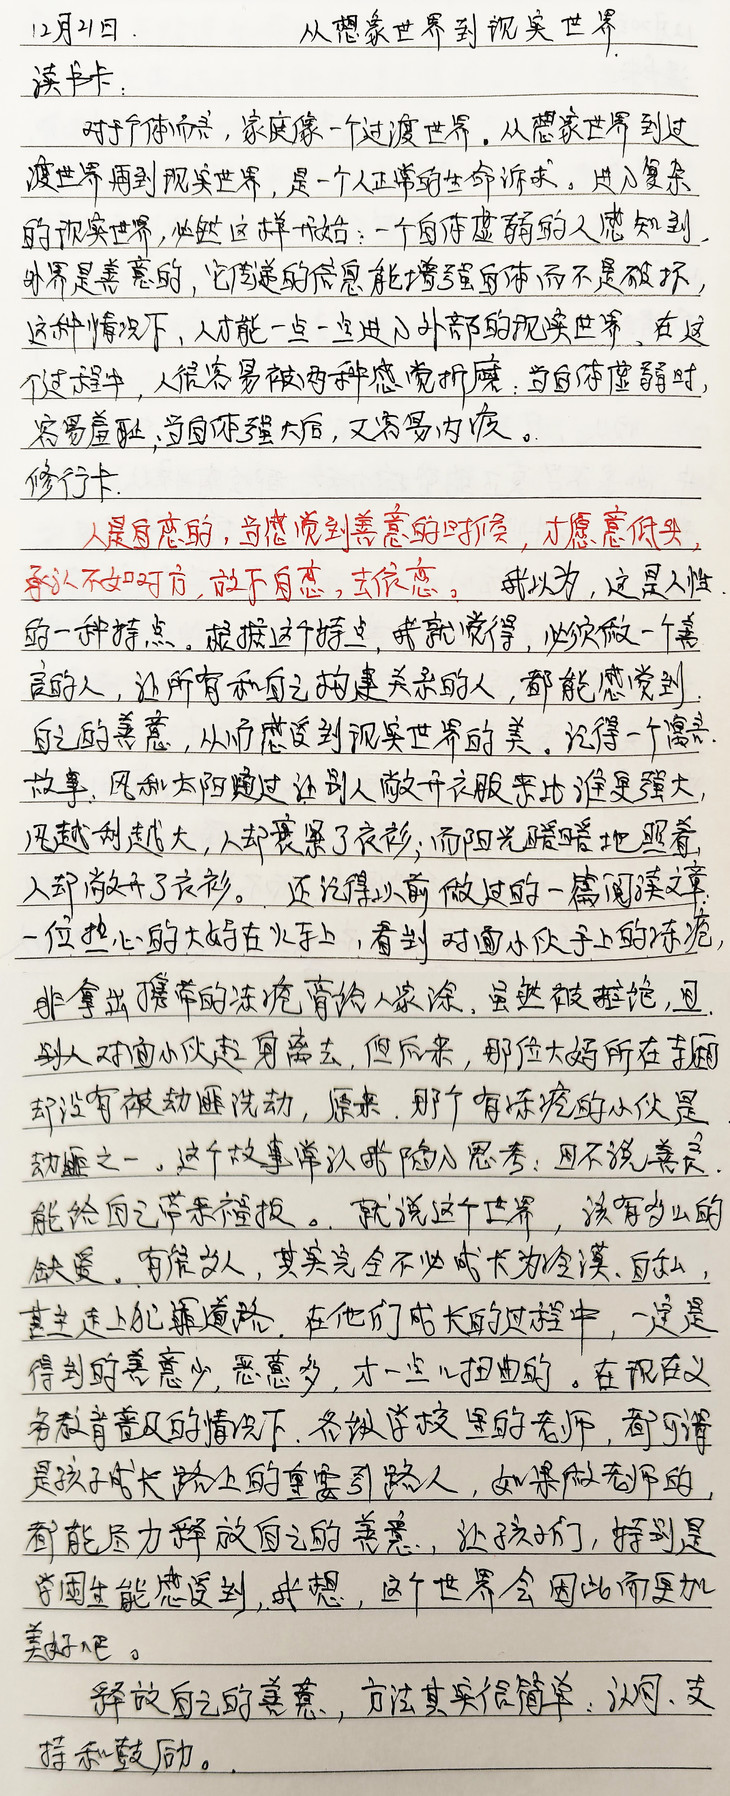 12月21日. 从想象世界到现实世界.
读书卡:
对于个体而言，家庭像一个过渡世界。从想象世界到过
渡世界再到现实世界，是一个人正常的生命诉求。进入复杂
的现实世界，必然这样开始：一个自体虚弱的人感知到，
外界是善意的，它传递的信息能增强自体而不是破坏，
这种情况下，人才能一点一点进入外部的现实世界、在这
个过程中，人很容易被两种感觉折磨：当自体虚弱时，
容易羞耻；当自体强大后，又容易内疚。
修行卡.
人是自恋的，当感觉到善意的时候，才愿意低头，
承认不如对方，放下自恋，去依恋。 我以为，这是人性
的一种特点。根据这个特点，我就觉得，必须做一个善
良的人，让所有和自己构建关系的人，都能感觉到
自己的善意，从而感受到现实世界的美。记得一个寓言
故事：风和太阳通过让别人敞开衣服来比谁更强大，
风越刮越大，人却裹紧了衣衫；而阳光暖暖地照着，
人却敞开了衣衫。 还记得以前做过的一篇阅读文章：
一位热心的大妈在火车上，看到对面小伙手上的冻疮，
非拿出携带的冻疮膏给人家涂，虽然被拒绝，且
别人对面小伙起身离去，但后来，那位大妈所在车厢
却没有被劫匪洗劫，原来，那个有冻疮的小伙是
劫匪之一。这个故事常让我陷入思考：且不说善良
能给自己带来福报。就说这个世界，该有多么的
缺爱。有很多人，其实完全不必成长为冷漠、自私，
甚至走上犯罪道路，在他们成长的过程中，一定是
得到的善意少，恶意多，才一点儿扭曲的。在现在义
务教育普及的情况下，各级学校里的老师，都可谓
是孩子成长路上的重要引路人，如果做老师的，
都能尽力释放自己的善意，让孩子们，特别是
学困生能感受到，我想，这个世界会因此而更加
美好吧。
释放自己的善意，方法其实很简单：认同、支
持和鼓励。